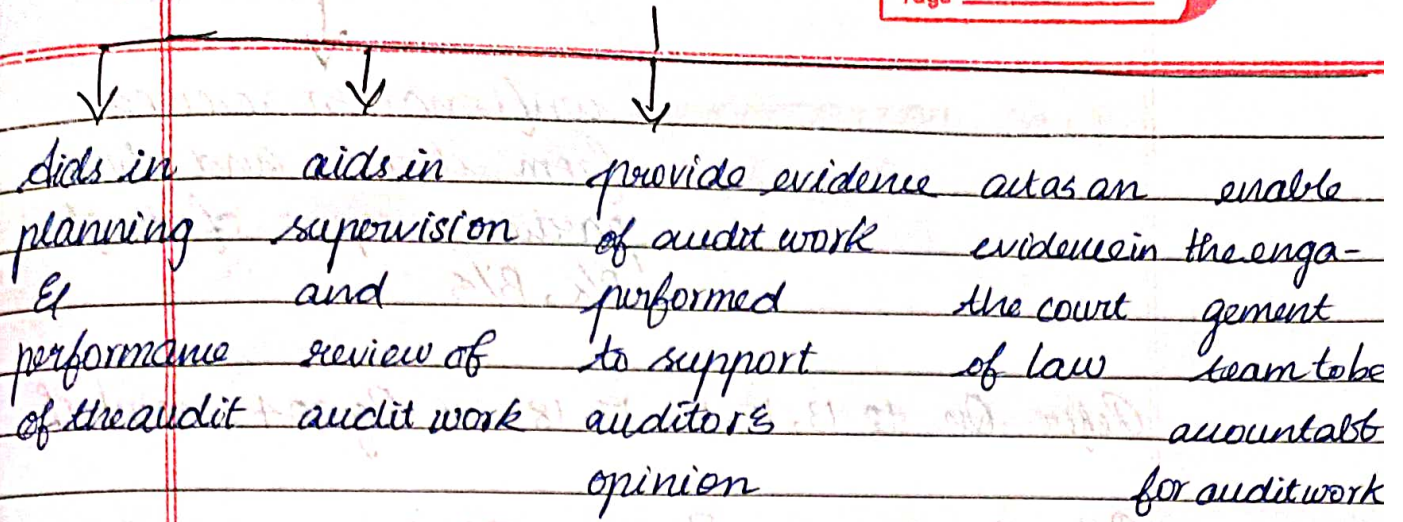 aids in
planning
&
performance
of the audit
aids in
supervision
and
review of
audit work
provide evidence
of audit work
performed
to support
auditors
opinion
act as an
evidence in
the court
of law
enable
the enga-
gement
team to be
accountabl
for audit work